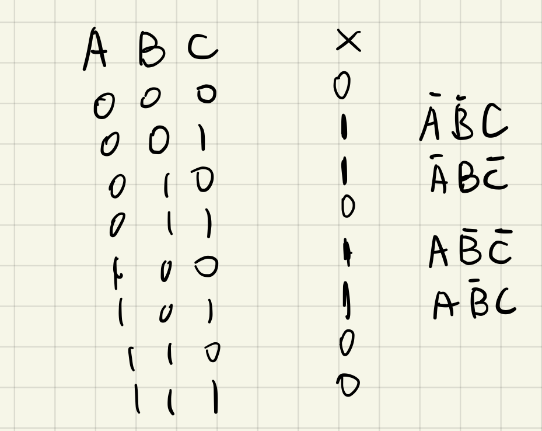 A B C X
0 0 0 0
0 0 1 1 A̅ B̅ C
0 1 0 1 A̅ B C̅
0 1 1 0
1 0 0 1 A B̅ C̅
1 0 1 1 A B̅ C
1 1 0 0
1 1 1 0